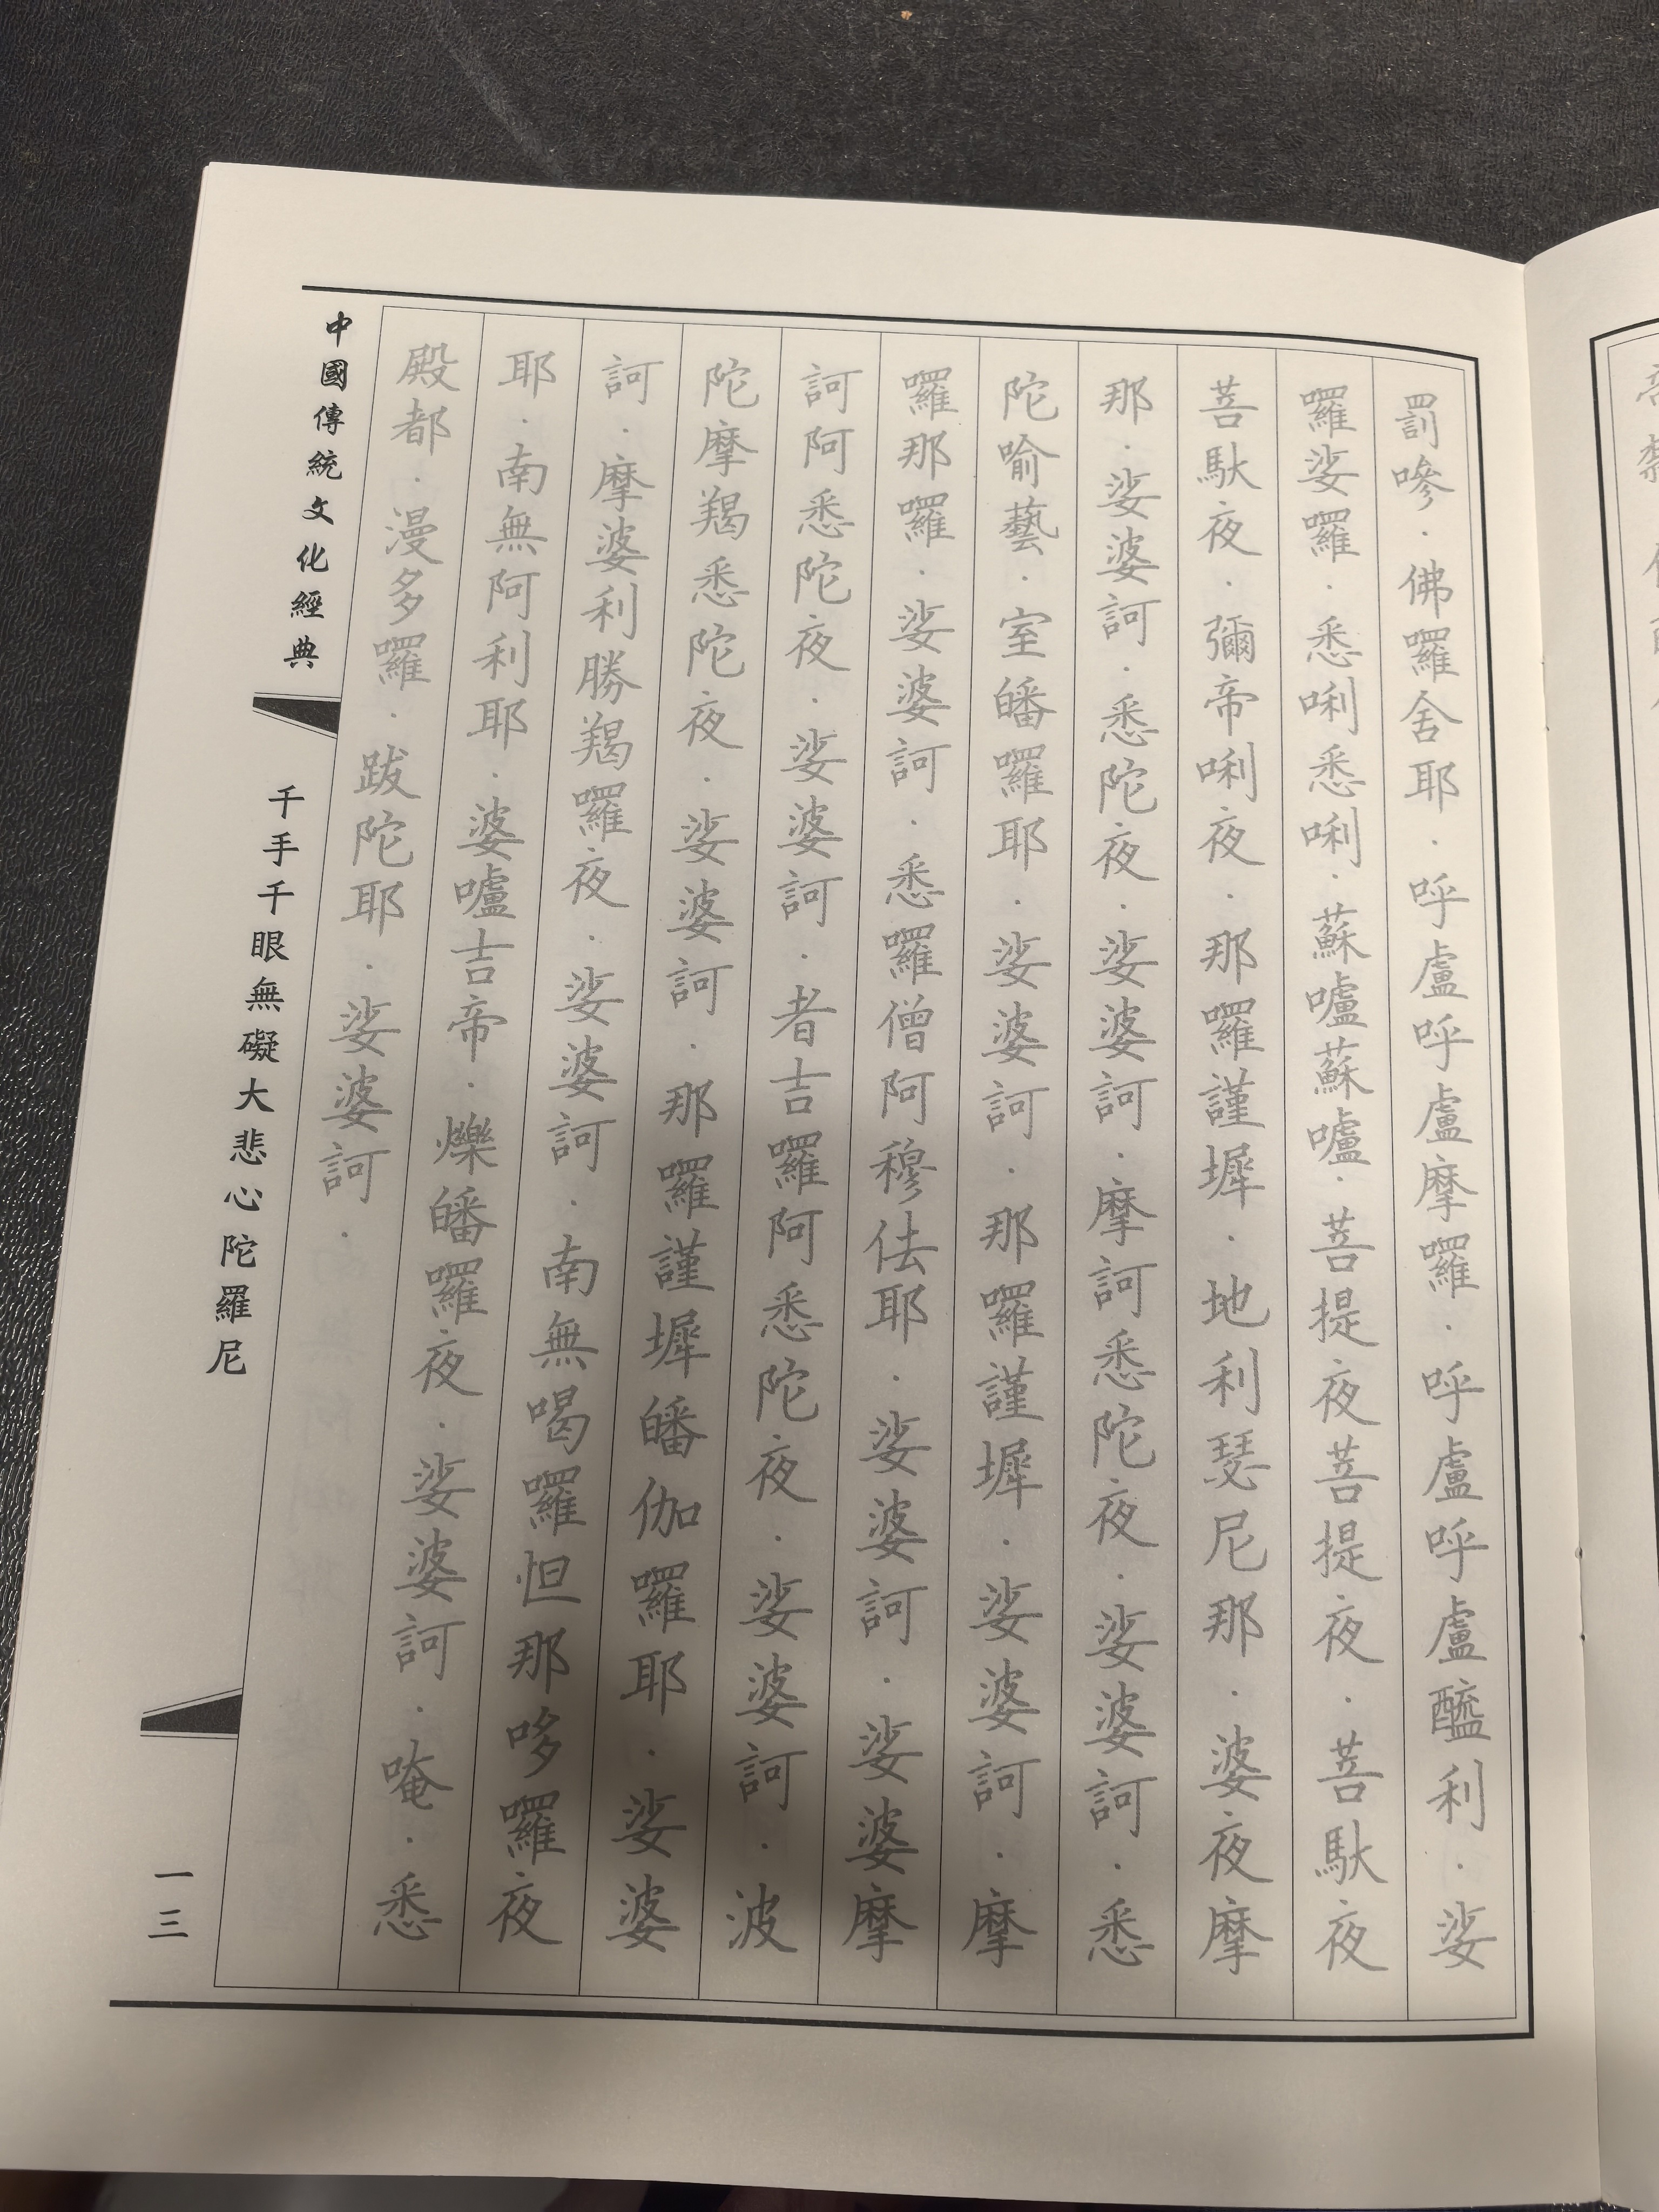 罰嘇．佛囉舍耶．呼盧呼盧摩囉．呼盧呼盧醯利．娑
囉娑囉．悉唎悉唎．蘇嚧蘇嚧．菩提夜菩提夜．菩馱夜
菩馱夜．彌帝唎夜．那囉謹墀．地利瑟尼那．婆夜摩
那．娑婆訶．悉陀夜．娑婆訶．摩訶悉陀夜．娑婆訶．悉
陀喻藝．室皤囉耶．娑婆訶．那囉謹墀．娑婆訶．摩
囉那囉．娑婆訶．悉囉僧阿穆佉耶．娑婆訶．娑婆摩
訶阿悉陀夜．娑婆訶．者吉囉阿悉陀夜．娑婆訶．波
陀摩羯悉陀夜．娑婆訶．那囉謹墀皤伽囉耶．娑婆
訶．摩婆利勝羯囉夜．娑婆訶．南無喝囉怛那哆囉夜
耶．南無阿利耶．婆嚧吉帝．爍皤囉夜．娑婆訶．唵．悉
殿都．漫多囉．跋陀耶．娑婆訶．
中國傳統文化經典
千手千眼無礙大悲心陀羅尼
一三